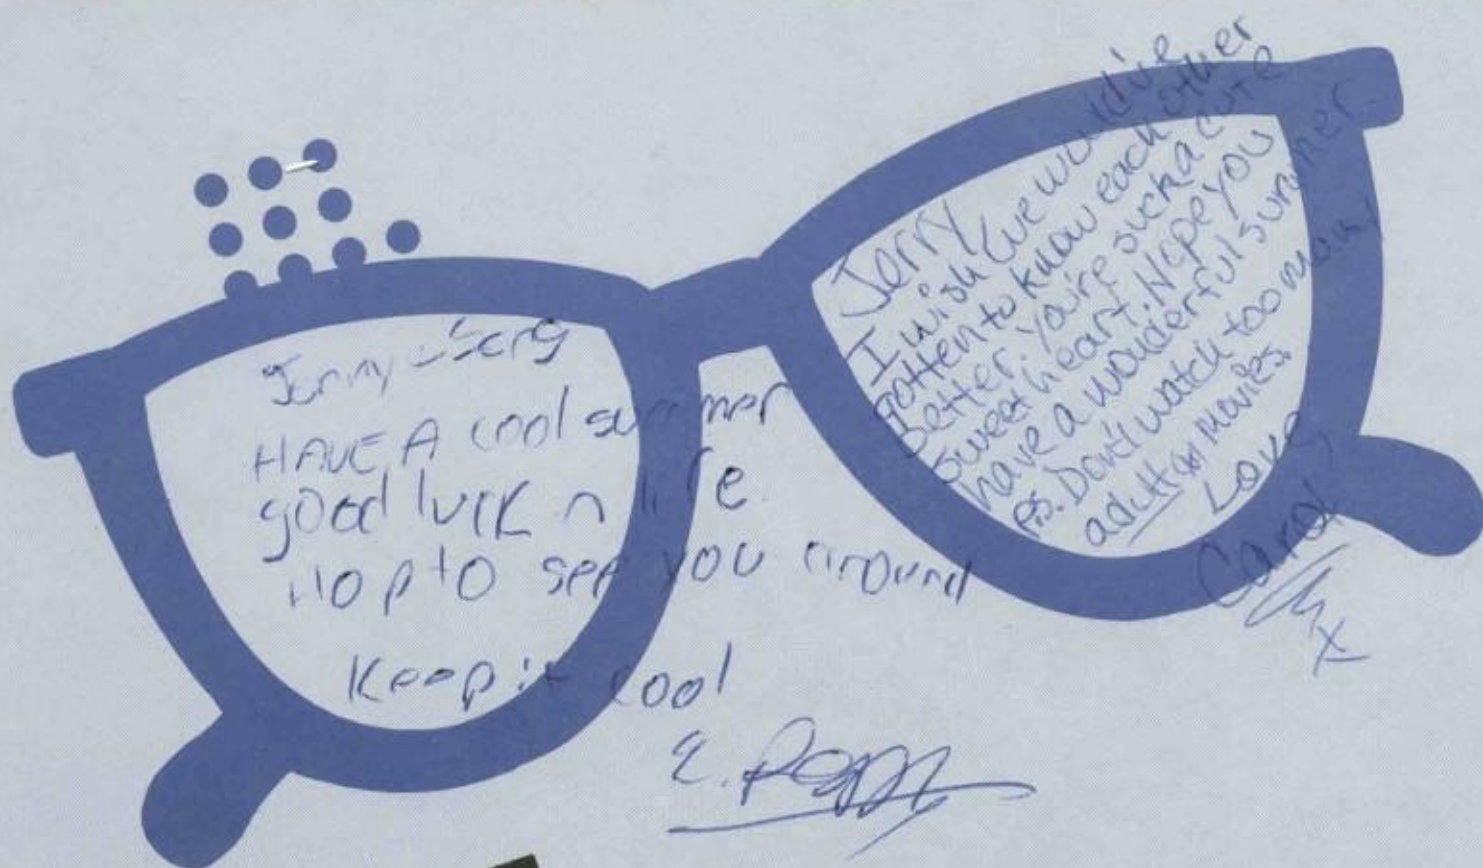 HAVE A cool summer
good luck n life.
Hop to see you around
Keep it cool
Jerry
I wish we would've
gotten to know each other
better. You're such a cute
sweet heart. Hope you
have a wonderful summer.
Ps. Don't watch too many
adult movies.
Love
Carol
x